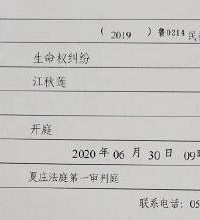 （2019）鲁0214民
生命权纠纷
江秋莲
开庭
2020年06月30日 09时
夏庄法庭第一审判庭
联系电话：05